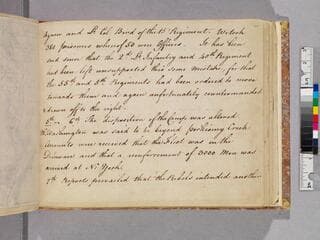 Agnew and Lt Col Bird of the 15 Regiment. We took
380 prisoners whereof 50 were Officers. It has been
out soon that the 2d Lt Infantry and 40th Regiment
not been left unsupported this some mistake, for that
the 55th and 5th Regiments had been ordered to move
towards them and again unfortunately countermanded
& drawn off to the right.
5th — 6th The disposition of the Camp was altered
Washington was said to be beyond Perkiomy Creek
accounts were received that the Fleet was in the
Delaware and that a reinforcement of 3000 Men was
arrived at N. York.
7th Reports prevailed that the Rebels intended another